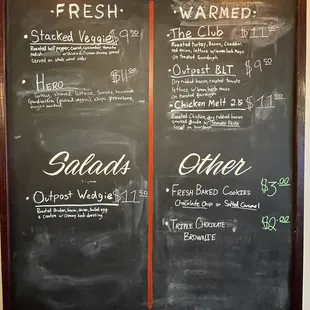 · FRESH ·
· Stacked Veggie $9.50
Roasted bell pepper, carrot, cucumber, tomato
Served on whole wheat
· Hero $11.00
turkey, lettuce, tomato,
chips,
Salads
· Outpost Wedgie $11.50
Roasted chicken, bacon, onion, boiled egg
& croutons w/ creamy herb dressing
· WARMED ·
· The Club $11.50
Roasted turkey, Bacon, Cheddar,
red onion, lettuce w/ lemon herb mayo
on Toasted Sourdough
· Outpost BLT $9.50
Dry rubbed bacon, roasted tomato
lettuce w/ lemon herb mayo
on toasted sourdough
· Chicken Melt 2.0 $11.50
Roasted Chicken, dry rubbed bacon
smoked gouda w/
Served on
Other
· Fresh Baked Cookies $3.00
Chocolate Chip or Salted Caramel
· Triple Chocolate $2.00
Brownie